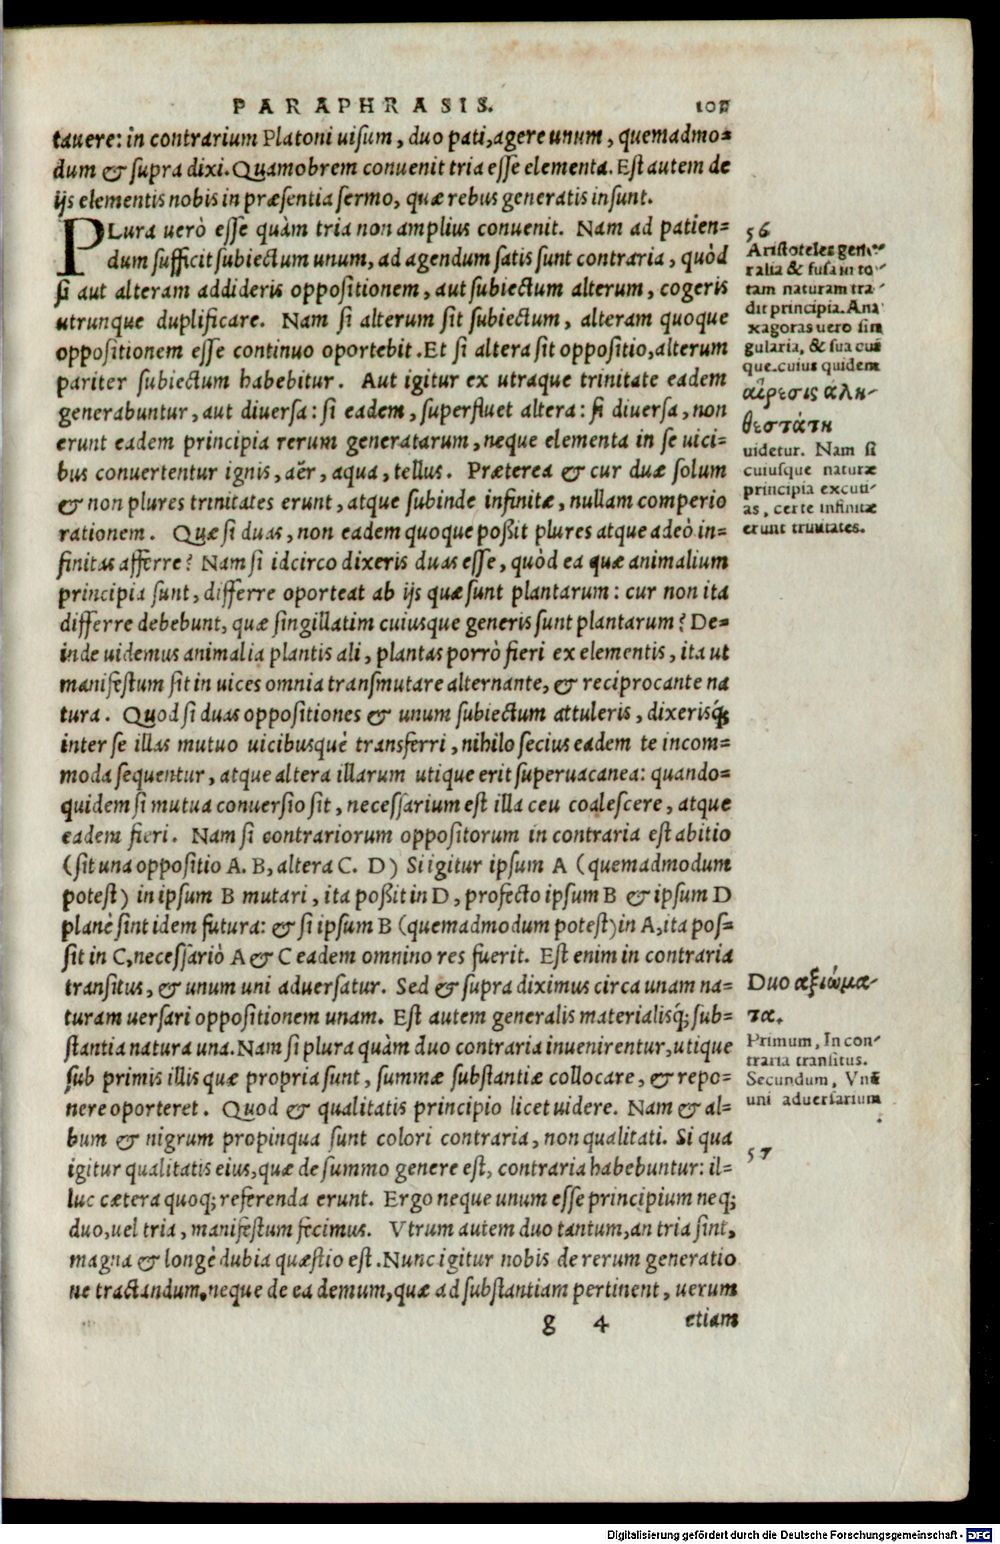 PARAPHRASIS.
tavere: in contrarium Platoni uisum, duo pati, agere unum, quemadmo=
dum & supra dixi. Quamobrem convenit tria esse elementa. Est autem de
ijs elementis nobis in præsentia sermo, quæ rebus generatis insunt.
PLura uerò esse quàm tria non amplius convenit. Nam ad patien=
dum sufficit subiectum unum, ad agendum satis sunt contraria, quòd
si aut alteram addideris oppositionem, aut subiectum alterum, cogeris
utrunque duplificare. Nam si alterum sit subiectum, alteram quoque
oppositionem esse continuo oportebit. Et si altera sit oppositio, alterum
pariter subiectum habebitur. Aut igitur ex utraque trinitate eadem
generabuntur, aut diversa: si eadem, superfluet altera: si diversa, non
erunt eadem principia rerum generatarum, neque elementa in se uici=
bus convertentur ignis, aër, aqua, tellus. Præterea & cur duæ solum
& non plures trinitates erunt, atque subinde infinitæ, nullam comperio
rationem. Quæ si duas, non eadem quoque poßit plures atque adeò in=
finitas afferre? Nam si idcirco dixeris duas esse, quòd ea quæ animalium
principia sunt, differre oporteat ab ijs quæ sunt plantarum: cur non ita
differre debebunt, quæ singillatim cuiusque generis sunt plantarum? De=
inde uidemus animalia plantis ali, plantas porrò fieri ex elementis, ita ut
manifestum sit in uices omnia transmutare alternante, & reciprocante na
tura. Quod si duas oppositiones & unum subiectum attuleris, dixerisq́;
inter se illas mutuo uicibusquè transferri, nihilo secius eadem te incom=
moda sequentur, atque altera illarum utique erit supervacanea: quando=
quidem si mutua conversio sit, necessarium est illa ceu coalescere, atque
eadem fieri. Nam si contrariorum oppositorum in contraria est abitio
(sit una oppositio A. B, altera C. D) Si igitur ipsum A (quemadmodum
potest) in ipsum B mutari, ita poßit in D, profecto ipsum B & ipsum D
planè sint idem futura: & si ipsum B (quemadmodum potest) in A, ita pos=
sit in C, necessariò A & C eadem omnino res fuerit. Est enim in contraria
transitus, & unum uni adversatur. Sed & supra diximus circa unam na=
turam uersari oppositionem unam. Est autem generalis materialisq́; sub=
stantia natura una. Nam si plura quàm duo contraria invenirentur, utique
sub primis illis quæ propria sunt, summæ substantiæ collocare, & repo=
nere oporteret. Quod & qualitatis principio licet uidere. Nam & al=
bum & nigrum propinqua sunt colori contraria, non qualitati. Si qua
igitur qualitatis eius, quæ de summo genere est, contraria habebuntur: il=
luc cætera quoq; referenda erunt. Ergo neque unum esse principium neq;
duo, uel tria, manifestum fecimus. Vtrum autem duo tantum, an tria sint,
magna & longè dubia quæstio est. Nunc igitur nobis de rerum generatio
ne tractandum, neque de ea demum, quæ ad substantiam pertinent, uerum
g 4 etiam
56
Aristoteles gene-
ralia & fusa in to-
tam naturam tra-
dit principia. Ana
xagoras uero sin
gularia, & sua cui
que. cuius quidem
αἵρεσις ἀλη-
θεστάτη
uidetur. Nam si
cuiusque naturæ
principia excuti-
as, certe infinitæ
erunt trinitates.
Duo ἀξιώμα-
τα.
Primum, In con-
traria transitus.
Secundum, Vnũ
uni adversarium
57
Digitalisierung gefördert durch die Deutsche Forschungsgemeinschaft - DFG